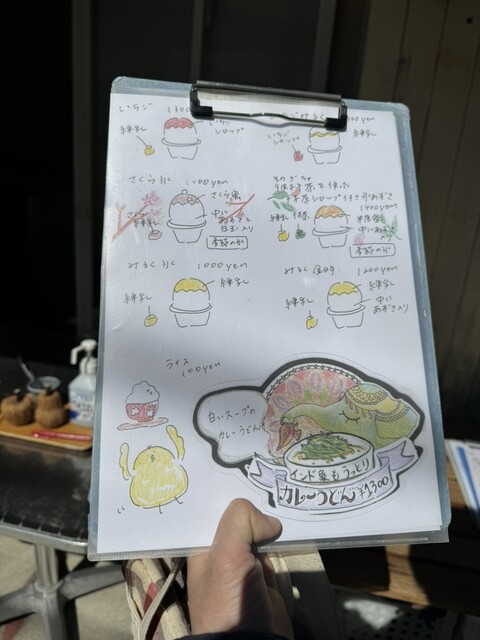 いちご
練乳
いちごシロップ
いちご
シロップ
練乳
さくら氷 1400yen
さくら
練乳
さくら風
中に
あずき
白玉入り
季節の氷
茶を使った
1400yen
練乳
抹茶
中にあずき
入り
季節の氷
みるく氷 1000yen
練乳
練乳
みるく金時 1200yen
練乳
練乳
中に
あずき入り
ライス
100yen
白いスープの
カレーうどん
インド象もうっとり
カレーうどん ¥1300